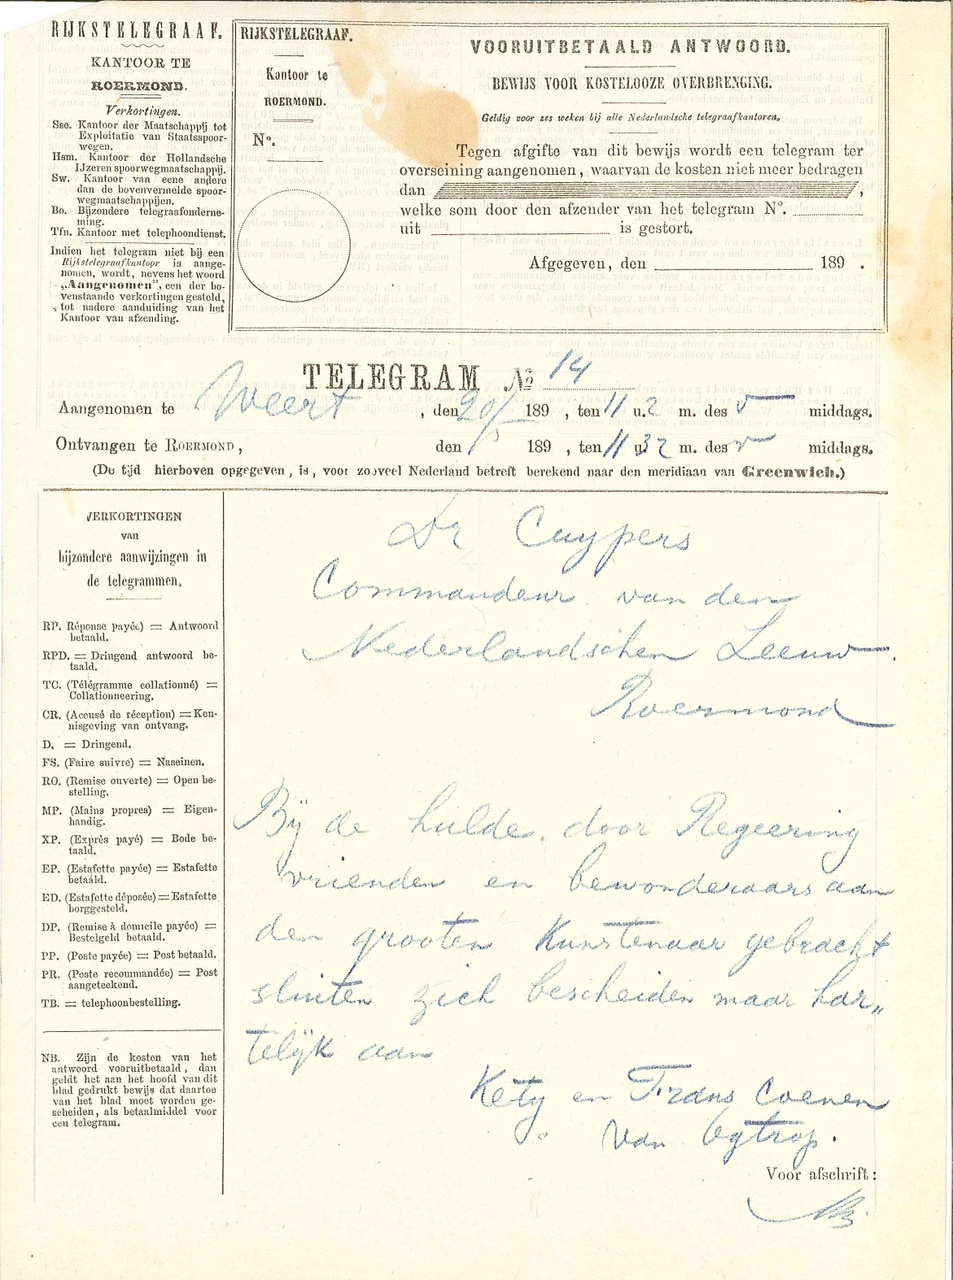 RIJKSTELEGRAAF.
KANTOOR TE
ROERMOND.
Verkortingen.
Sne. Kantoor der Maatschappij tot
Exploitatie van Staatsspoor-
wegen.
Hsm. Kantoor der Hollandsche
IJzeren spoorwegmaatschappij.
Sw. Kantoor van eene andere
dan de bovenvermelde spoor-
wegmaatschappijen.
Bo. Bijzondere telegraafonderne-
ming.
Tfn. Kantoor met telephoondienst.
Indien het telegram niet bij een
Rijkstelegraafkantoor is aange-
nomen, wordt, nevens het woord
„Aangenomen”, een der bo-
venstaande verkortingen gesteld,
tot nadere aanduiding van het
Kantoor van afzending.
RIJKSTELEGRAAF.
Kantoor te
ROERMOND.
No.
VOORUITBETAALD ANTWOORD.
BEWIJS VOOR KOSTELOOZE OVERBRENGING.
Geldig voor zes weken bij alle Nederlandsche telegraafkantoren.
Tegen afgifte van dit bewijs wordt een telegram ter
overseining aangenomen, waarvan de kosten niet meer bedragen
dan ,
welke som door den afzender van het telegram No.
uit is gestort.
Afgegeven, den 189 .
TELEGRAM No 14
Aangenomen te Weert , den 20/ 189 , ten 11 u. 2 m. des v middags.
Ontvangen te ROERMOND, den / 189 , ten 11 u 32 m. des v middags.
(De tijd hierboven opgegeven, is, voor zooveel Nederland betreft berekend naar den meridiaan van Greenwich.)
VERKORTINGEN
van
bijzondere aanwijzingen in
de telegrammen.
RP. (Réponse payée) = Antwoord
betaald.
RPD. = Dringend antwoord be-
taald.
TC. (Télégramme collationné) =
Collationneering.
CR. (Accusé de réception) = Ken-
nisgeving van ontvang.
D. = Dringend.
FS. (Faire suivre) = Naseinen.
RO. (Remise ouverte) = Open be-
stelling.
MP. (Mains propres) = Eigen-
handig.
XP. (Exprès payé) = Bode be-
taald.
EP. (Estafette payée) = Estafette
betaald.
ED. (Estafette déposée) = Estafette
borggesteld.
DP. (Remise à domicile payée) =
Bestelgeld betaald.
PP. (Poste payée) = Post betaald.
PR. (Poste recommandée) = Post
aangeteekend.
TB. = telephoonbestelling.
NB. Zijn de kosten van het
antwoord vooruitbetaald, dan
geldt het aan het hoofd van dit
blad gedrukt bewijs dat daartoe
van het blad moet worden ge-
scheiden, als betaalmiddel voor
een telegram.
Dr Cuypers
Commandeur van den
Nederlandschen Leeuw
Roermond
Bij de hulde door Regeering
vrienden en bewonderaars aan
den grooten Kunstenaar gebracht
sluiten zich bescheiden maar har„
telijk aan
Kety en Frans Coenen
van Ogtrop.
Voor afschrift: